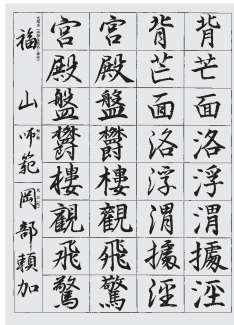 背芒面洛浮渭據涇
背芒面洛浮渭據涇
宮殿盤欝樓觀飛驚
宮殿盤欝樓觀飛驚
福山師範岡部賴加